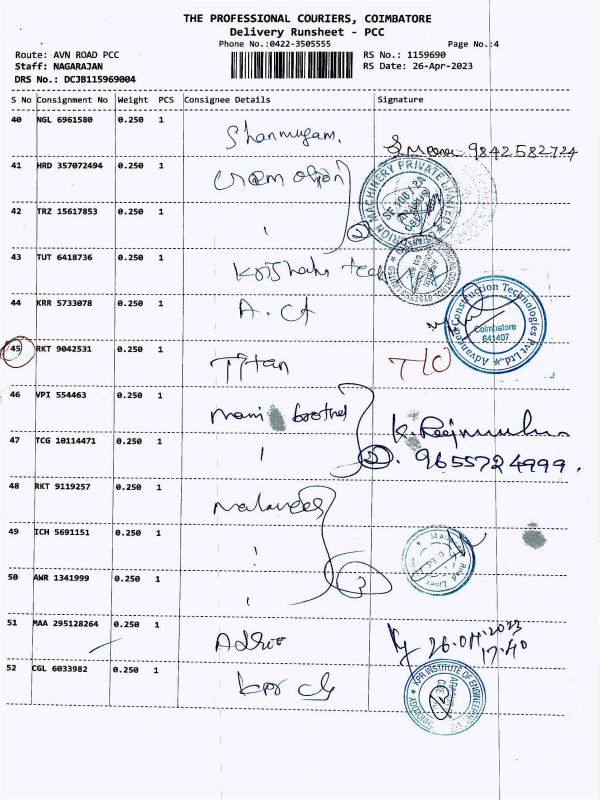 THE PROFESSIONAL COURIERS, COIMBATORE
Delivery Runsheet - PCC
Phone No.:0422-3505555
Page No.:4
Route: AVN ROAD PCC
RS No.: 1159690
Staff: NAGARAJAN
RS Date: 26-Apr-2023
DRS No.: DCJB115969004
S No Consignment No Weight PCS Consignee Details Signature
40 NGL 6961580 0.250 1 Shanmugam. 9842582724
41 HRD 357072494 0.250 1
MACHINERY PRIVATE LIMITED
42 TRZ 15617853 0.250 1
2
43 TUT 6418736 0.250 1 Tech
44 KRR 5733078 0.250 1 A. Ct
Advance Construction Technologies Pvt Ltd.
Coimbatore
641407
45 RKT 9042531 0.250 1 Titan
46 VPI 554463 0.250 1 Mani
47 TCG 10114471 0.250 1
2
9655724999.
48 RKT 9119257 0.250 1
49 ICH 5691151 0.250 1
50 AWR 1341999 0.250 1
51 MAA 295128264 0.250 1 26.04.2023
17.40
52 CGL 6033982 0.250 1 kpr
KPR INSTITUTE OF ENGINEERING